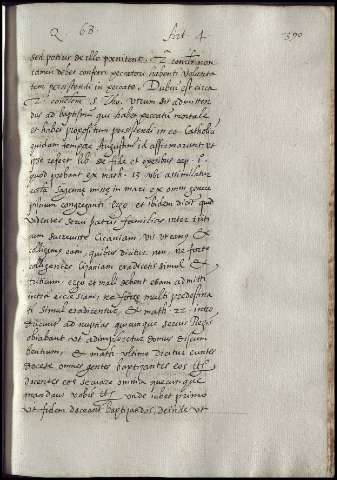 Q 68. art 4 390
sed potius de illo pœnitens. 2ª conclusio non
tamen debet conferri peccatori habenti volunta
tem persistendi in peccato. Dubiū est circa
2ª conclusionem S. Tho. Utrum sit admitten
dus ad baptismū qui habet peccatū mortale
et habet propositum persistendi in eo. Catholici
quidam tempore Augustini id affirmarunt ut
ipse refert lib. de fide et operibus cap. 1.
quod probant ex math. 13 ubi assimilatur
sagenæ missæ in mari ex omni genere
piscium congreganti ergo. et ibidem dicit quod
videntes servi patris familias inter triti
cum succrevisse Cicaniam, vis ut eamus et
colligimus eam, quibus dicitur non, ne forte
colligentes Cicaniam eradicetis simul et
triticum, ergo et mali debent etiam admitti
intra ecclesiam, ne forte multi predestina
ti simul eradicentur, et math. 22. intro
ducimur ad nuptias quicunque servis Regis
obiabant ut adimpleretur domus discum
bentium, et math ultimo dicitur euntes
docete omnes gentes baptizantes eos etc.
docentes eos servare omnia quecunque
mandavi vobis etc. unde iubet primo
ut fidem doceant baptizandos, deinde ut